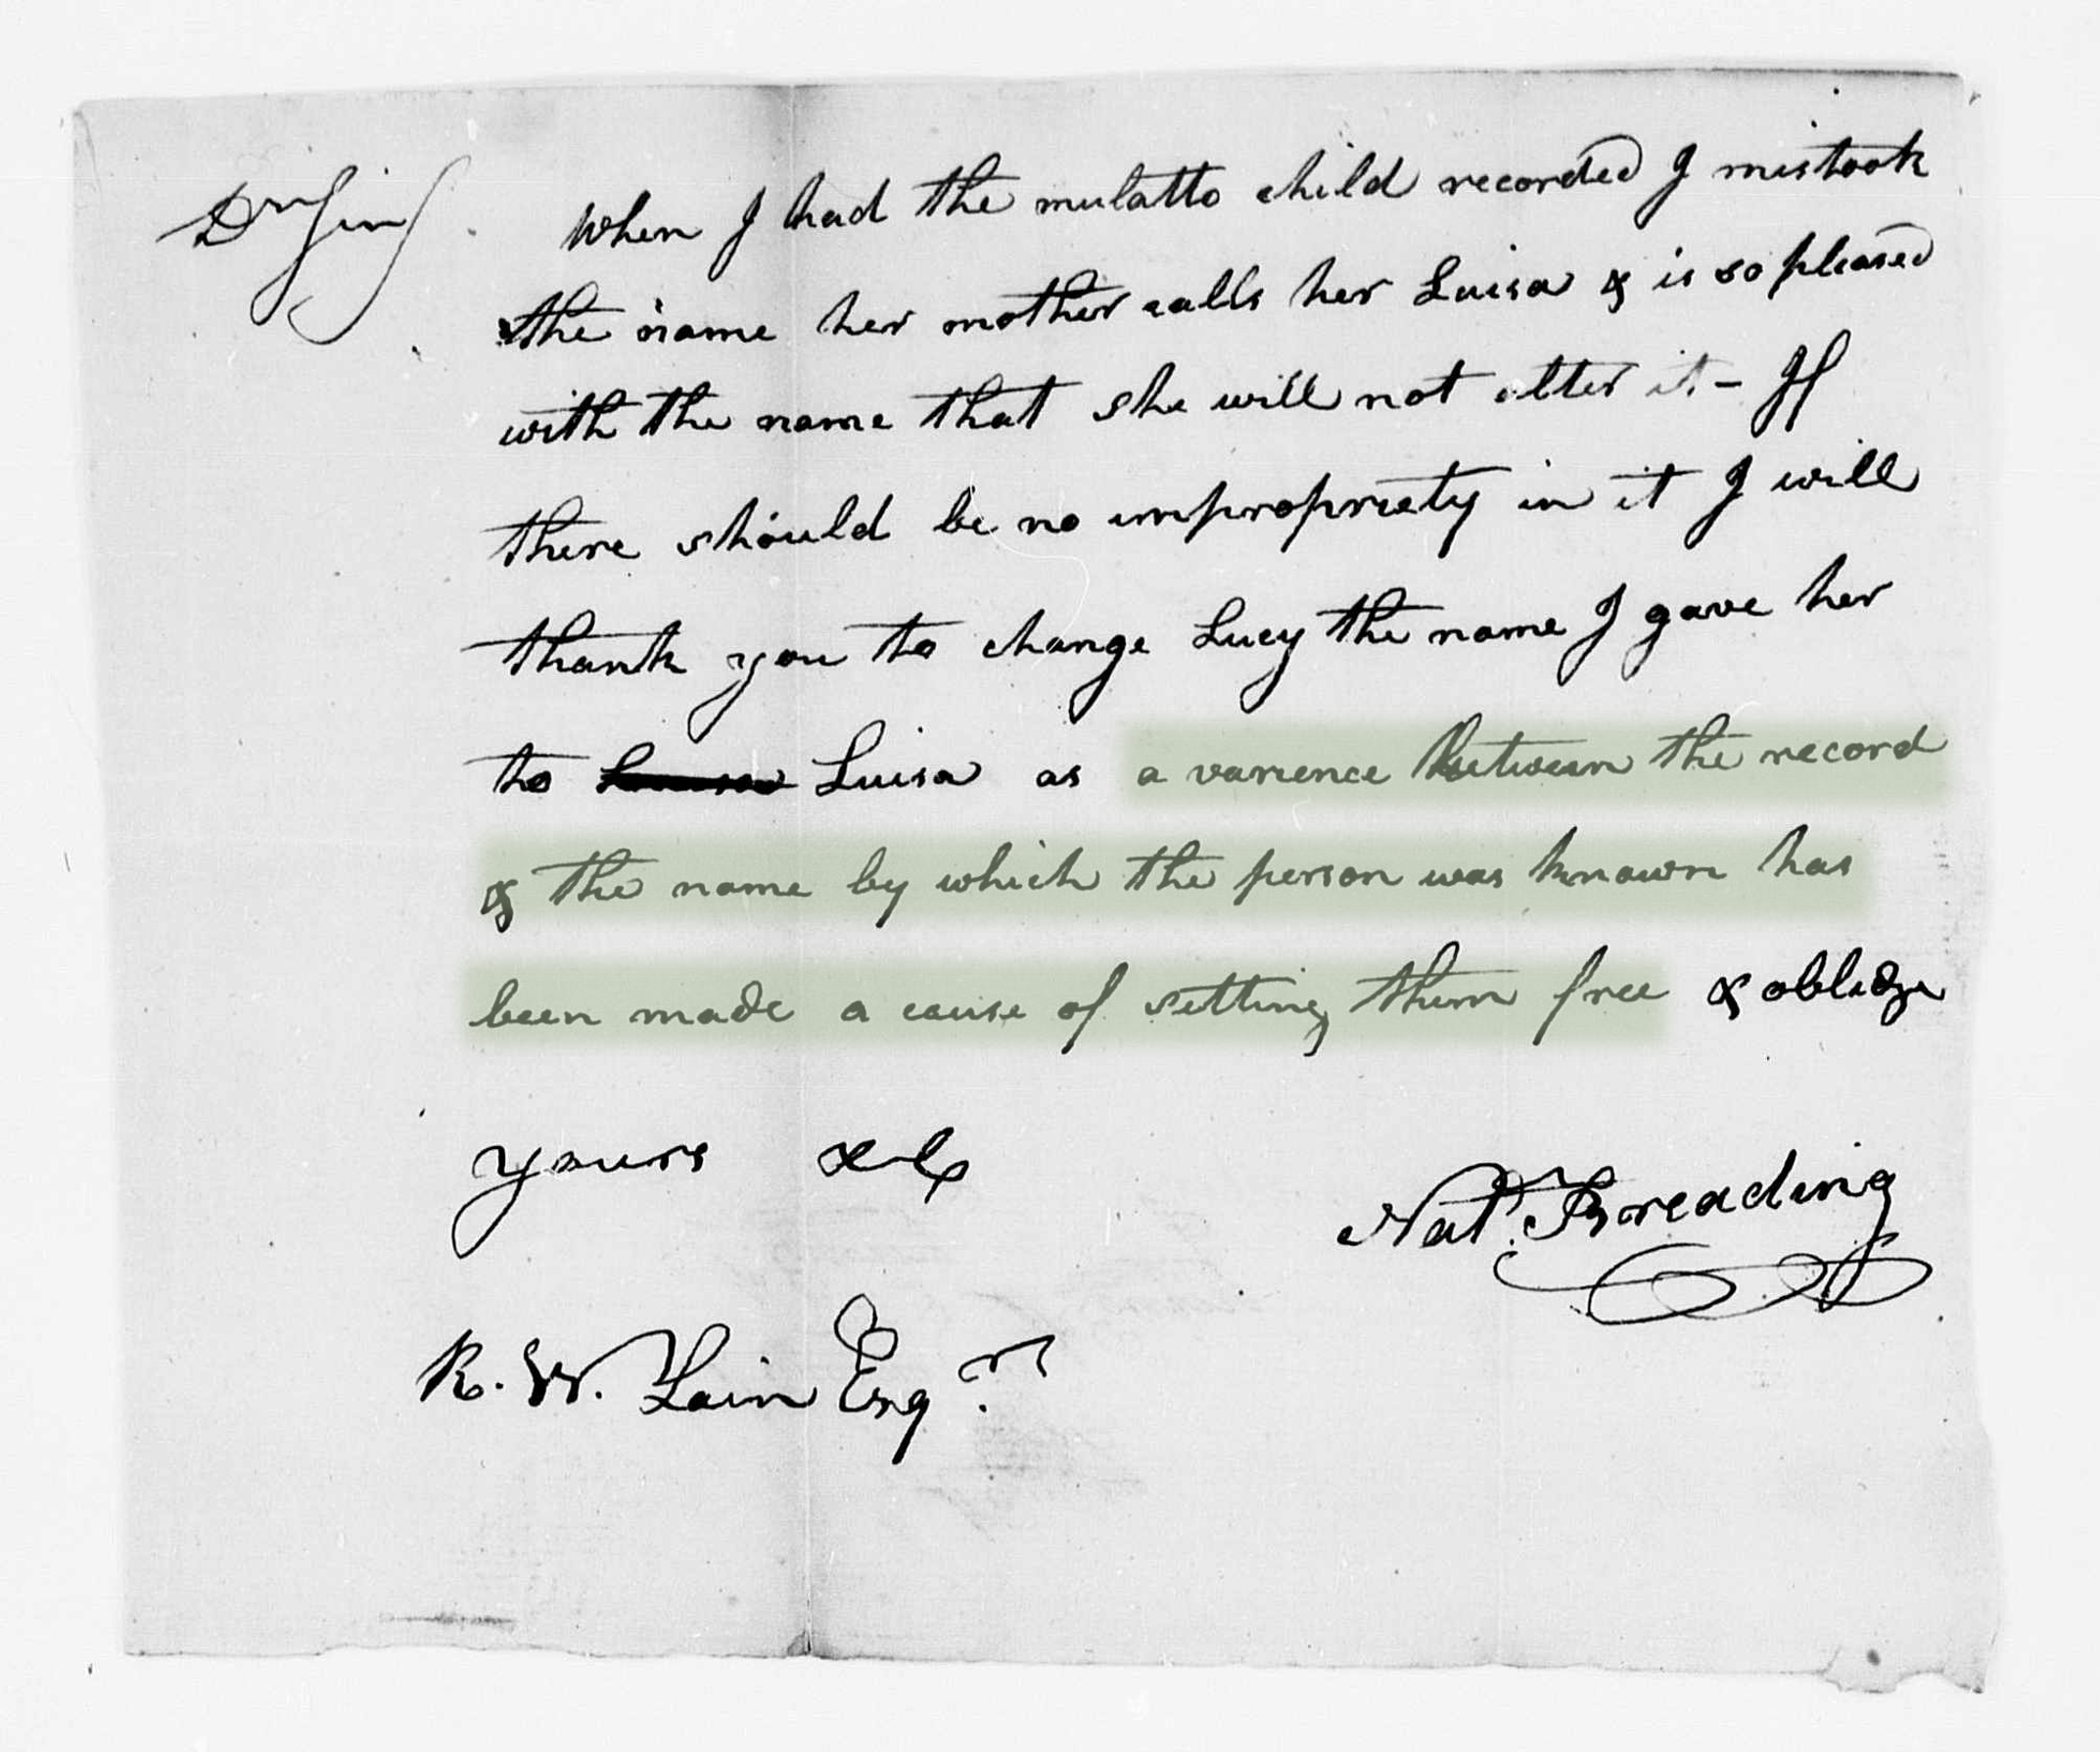 Dr Sir,
When I had the mulatto child recorded I mistook
the name her mother calls her Luisa & is so pleased
with the name that she will not alter it - If
there should be no impropriety in it I will
thank you to change Lucy the name I gave her
to Luisa as a varience between the record
& the name by which the person was known has
been made a cause of setting them free & obledge
yours &c
Natl. Breading
R. W. Lain Esqr.